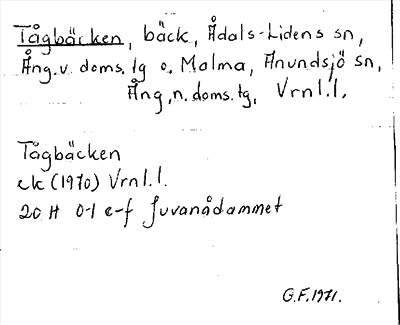 Tågbäcken, bäck, Ådals-Lidens sn,
Ång.v. doms.tg o. Malma, Anundsjö sn,
Ång.n.doms.tg, Vrnl.l.
Tågbäcken
ek (1970) Vrnl.l.
20 H 0-1 e-f Juvanådammet
G.F.1971.